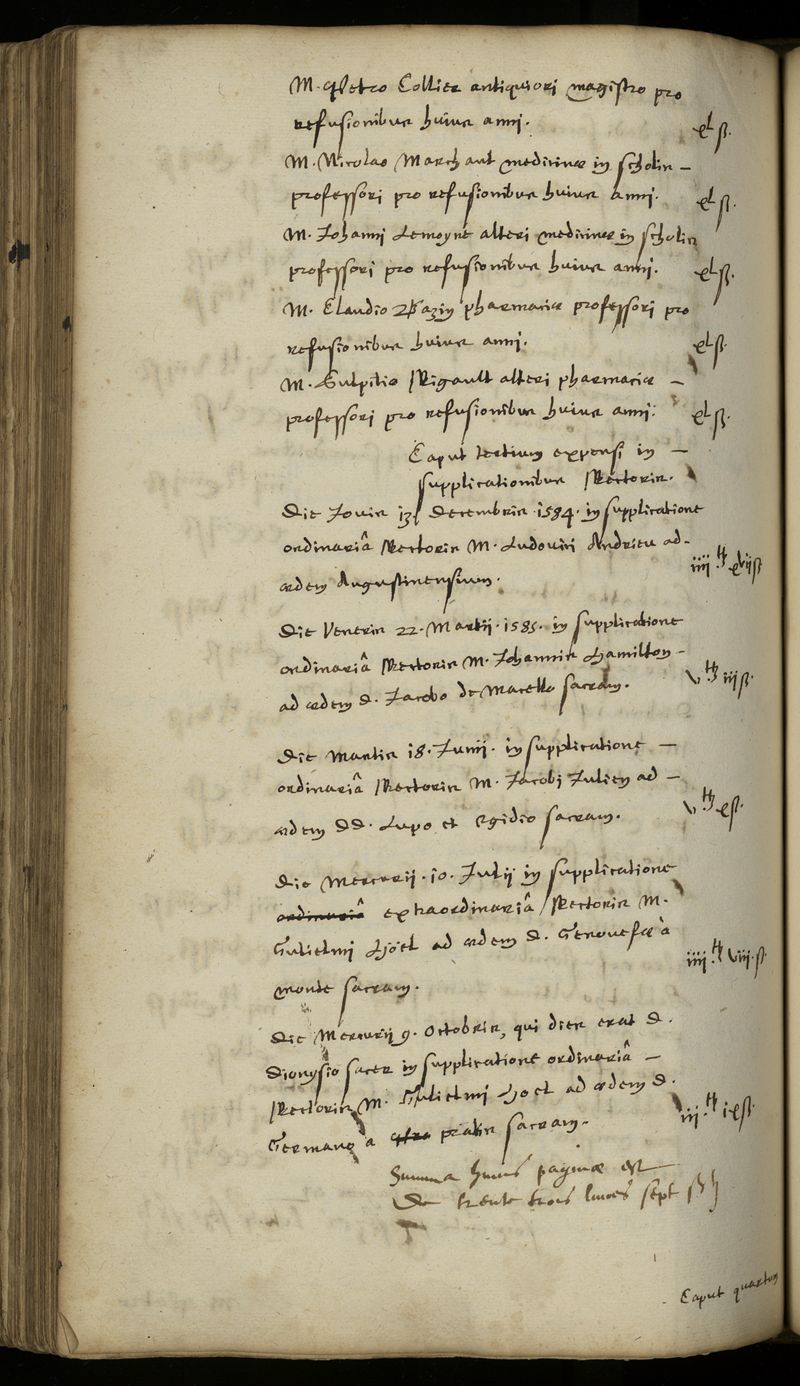 M. Petro Collier antiquiori magistro pro
refusionibus huius anni. xl ß.
M. Nicolao Marchant medicinæ in scholis –
professori pro refusionibus huius anni. xl ß.
M. Johanni Lemoyne alteri medicinæ in scholis
professori pro refusionibus huius anni. xl ß.
M. Claudio Bazin pharmaciæ professori pro
refusionibus huius anni. xl ß.
M. Sulpitio Rigault alteri pharmaciæ –
professori pro refusionibus huius anni. xl ß.
Caput tertium expensi in –
supplicationibus Rectoris.
Die Jovis 13 Decembris 1584. in supplicatione
ordinariâ Rectoris M. Ludovici Andrieu ad-
ædem Augustinensium. iiii ₶ xvii ß
Die Veneris 22. Martii. 1585. in supplicatione
ordinariâ Rectoris M. Johannis Hamilton –
ad ædem D. Jacobo de Marello sacram. v ₶ iii ß.
Die Martis 18. Junii. in supplicatione –
ordinariâ Rectoris M. Jacobi Julien ad –
ædem DD. Lupo et Ægidio sacram. v ₶ x ß.
Die Mercurij. 10. Julij in supplicatione
ordinariâ extraordinariâ Rectoris M.
Gulielmi Hoel ad ædem D. Genovefæ a
monte sacram. iiii ₶ viii ß.
Die Mercurij 9. Octobris, qui dies erat D.
Dionysio sacer in supplicatione ordinariâ –
Rectoris M. Gulielmi Hoel ad ædem D.
Germano a pratis sacram. iii ₶ ix ß.
Summa huius paginæ est
De trente trois livres sept ß
Caput quartum